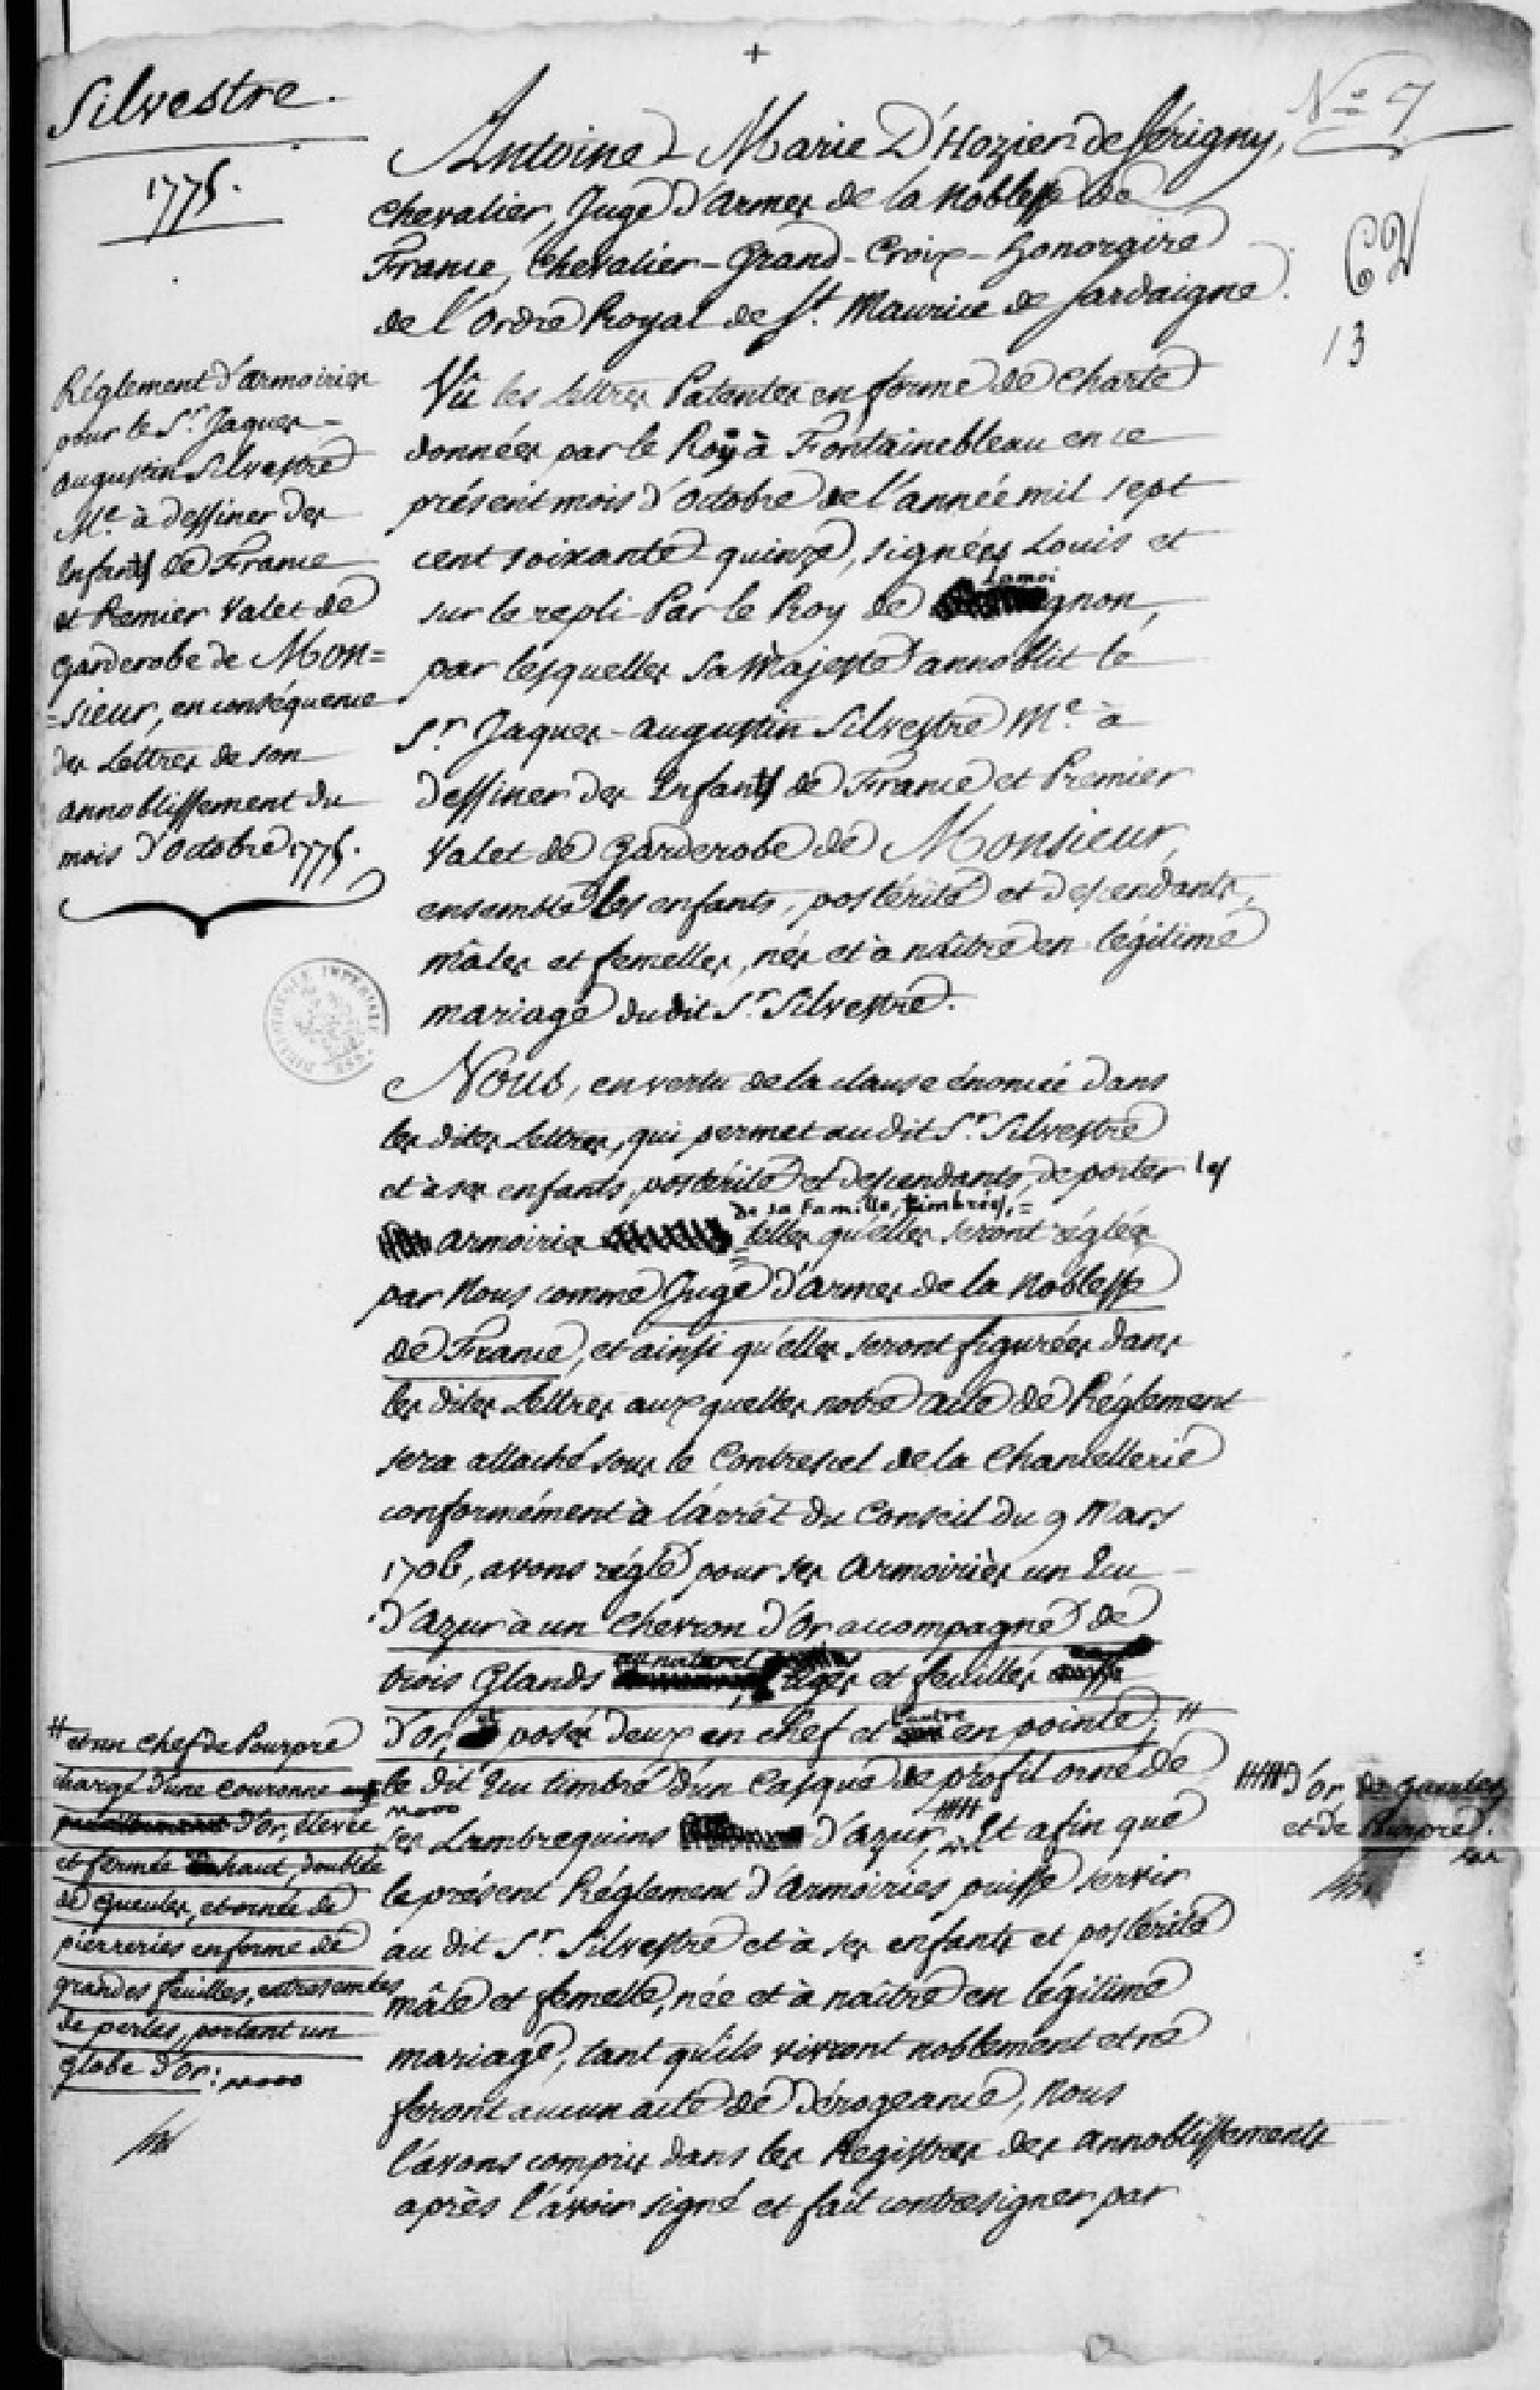 +
Silvestre.
1775.
N.º 7
62
13
Antoine-Marie D'Hozier de Sérigny,
Chevalier, Juge d'armes de la Noblesse de
France, Chevalier-Grand-Croix-honoraire
de l'Ordre Royal de St. Maurice de Sardaigne.
Réglement d'armoiries
pour le Sr. Jaques-
Augustin Silvestre
Me. à dessiner des
Enfants de France
et Premier Valet de
Garderobe de Mon=
=sieur, en conséquence
des Lettres de son
annoblissement du
mois d'Octobre 1775.
Vû les Lettres Patentes en forme de Charte
données par le Roy à Fontainebleau en ce
présent mois d'Octobre de l'année mil sept
cent soixante quinze, signées Louis et
sur le repli Par le Roy de Lamoignon,
par lesquelles Sa Majesté annoblit le
Sr. Jaques-Augustin Silvestre Me. à
dessiner des Enfants de France et Premier
Valet de Garderobe de Monsieur,
ensemble les enfants, postérité et descendants,
mâles et femelles, nés et à naître en légitime
mariage du dit Sr. Silvestre.
BIBLIOTHEQUE IMPERIALE
Nous, en vertu de la clause énoncée dans
les dites Lettres, qui permet au dit Sr. Silvestre
et à ses enfants, postérité et descendants, de porter les
armoiries de sa Famille, timbrées,= telles qu'elles seront réglées
par Nous comme Juge d'armes de la Noblesse
de France, et ainsi qu'elles seront figurées dans
les dites Lettres auxquelles notre acte de Réglement
sera attaché sous le Contrescel de la Chancellerie
conformément à l'arrêt du Conseil du 9 Mars
1706, avons réglé pour ses Armoiries un Ecu
d'azur à un chevron d'Or accompagné de
trois Glands au naturel, tigés et feuillés
d'Or, et posés deux en chef et l'autre en pointe; #
le dit Ecu timbré d'un Casque de profil orné de
ses Lambrequins d'azur, Et afin que
le présent Réglement d'Armoiries puisse servir
au dit Sr. Silvestre et à ses enfants et postérité
mâle et femelle, née et à naître en légitime
mariage, tant qu'ils vivront noblement et ne
feront aucun acte de dérogeance, Nous
l'avons compris dans les Registres des annoblissements
après l'avoir signé et fait contresigner par
# et un chef de Pourpre
chargé d'une Couronne
d'Or, élevée
et fermée haut, doublée
de gueules, et ornée de
pierreries en forme de
grandes feuilles, entresemées
de perles, portant un
globe d'Or:
d'Or, de gueules
et de Pourpre.